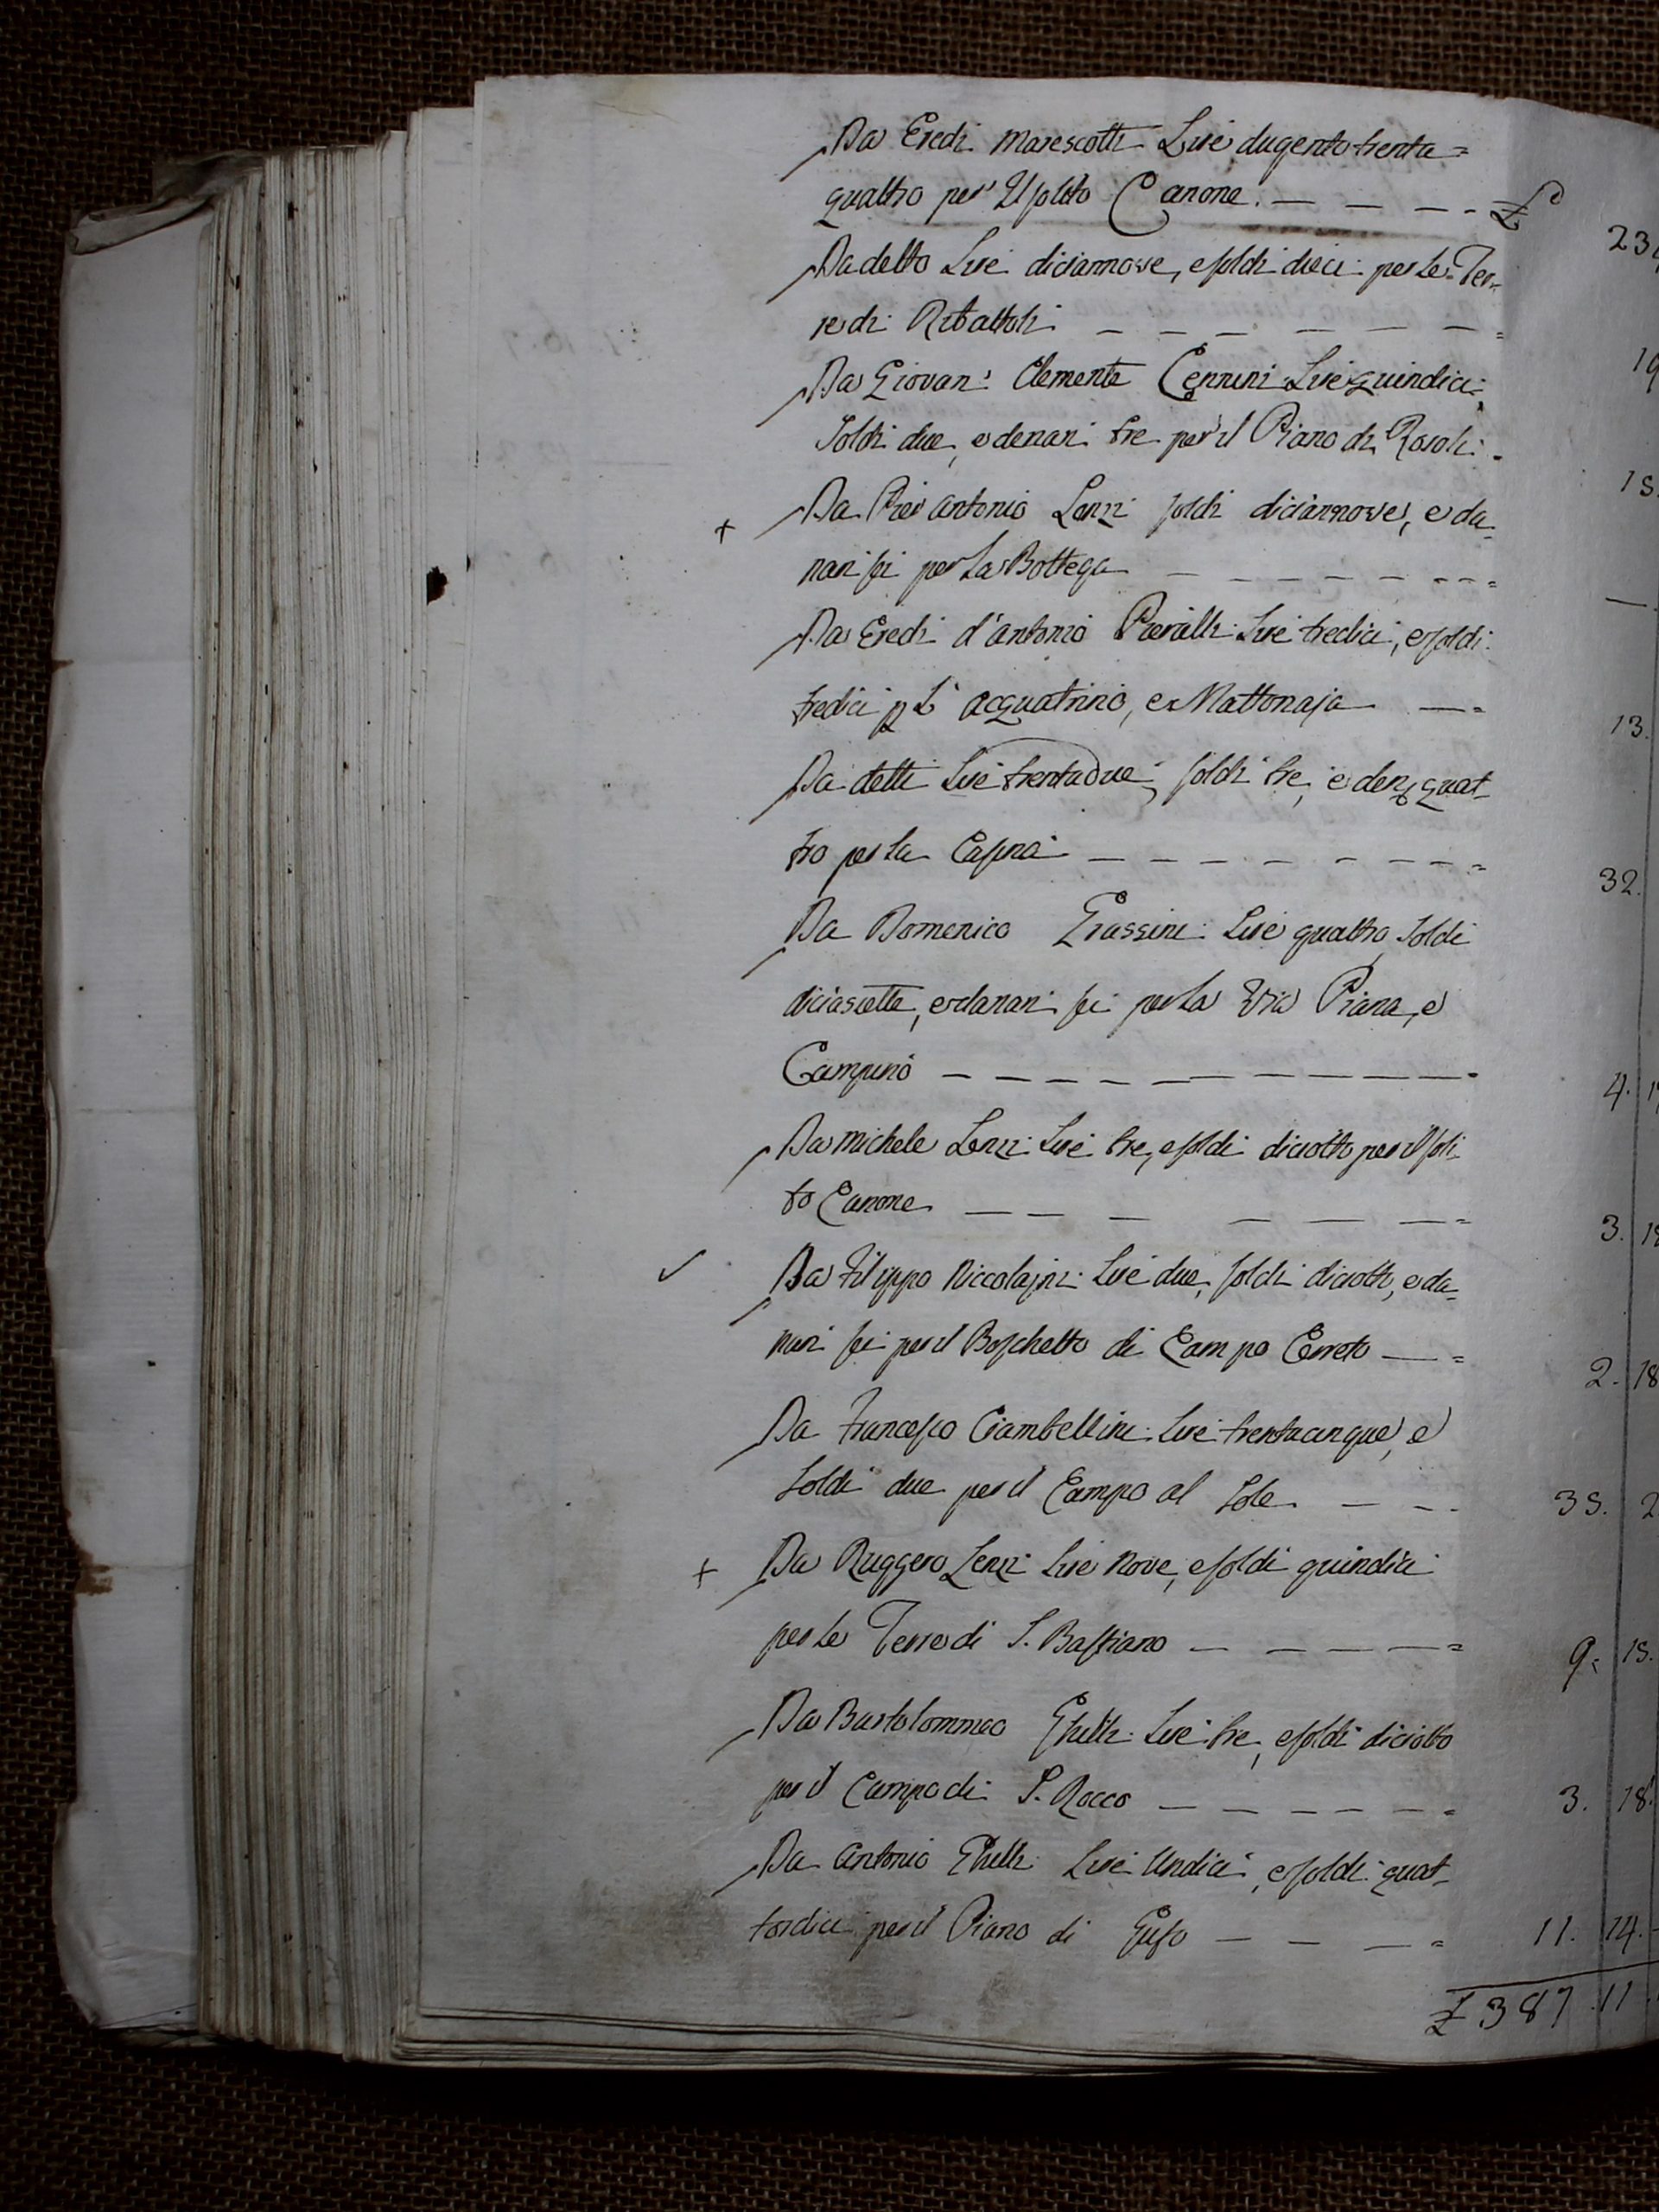 Da Eredi Marescotti Lire dugento trenta=
quattro per Il solito Canone. — — — - £ 234
Da detto Lire diciannove, e soldi dieci per le Ter=
re di Ribattoli — — — — — — = 19
Da Giovan: Clemente Cennini Lire quindici
Soldi due, e denari tre per il Piano di Rosoli - 15.
+ Da Pier Antonio Lenzi soldi diciannove, e da=
nari sei per La Bottega — — — — — - - = —.
Da Eredi d'Antonio Pieralli Lire tredici, e soldi
tredici p L'acquatrino, e Mattonaja — = 13.
Da detti Lire trentadue, soldi tre, e den: quat=
tro per la Casina — — — — — — — = 32.
Da Domenico Grassini Lire quattro, Soldi
diciasette, e danari sei per La Via Piana, e
Campino — — — — — — — — — = 4. 17
Da Michele Lenzi Lire tre, e soldi diciotto per il soli
to Canone — — — — — — = 3. 18
✓ Da Filippo Niccolajni Lire due, soldi diciotto, e da=
nari sei per il Boschetto di Campo Cerreto — = 2. 18
Da Francesco Ciambellini Lire trentacinque, e
Soldi due per il Campo al Sole — — - 35. 2
+ Da Ruggero Lenzi Lire Nove, e soldi quindici
per le Terre di S. Bastiano — — — — = 9. 15.
Da Bartolommeo Ghelli Lire tre, e soldi diciotto
per il Campo di S. Rocco — — — — — = 3. 18.
Da Antonio Ghelli Lire Undici, e soldi quat=
tordici per il Piano di — — — = 11. 14. -
£ 387. 11.